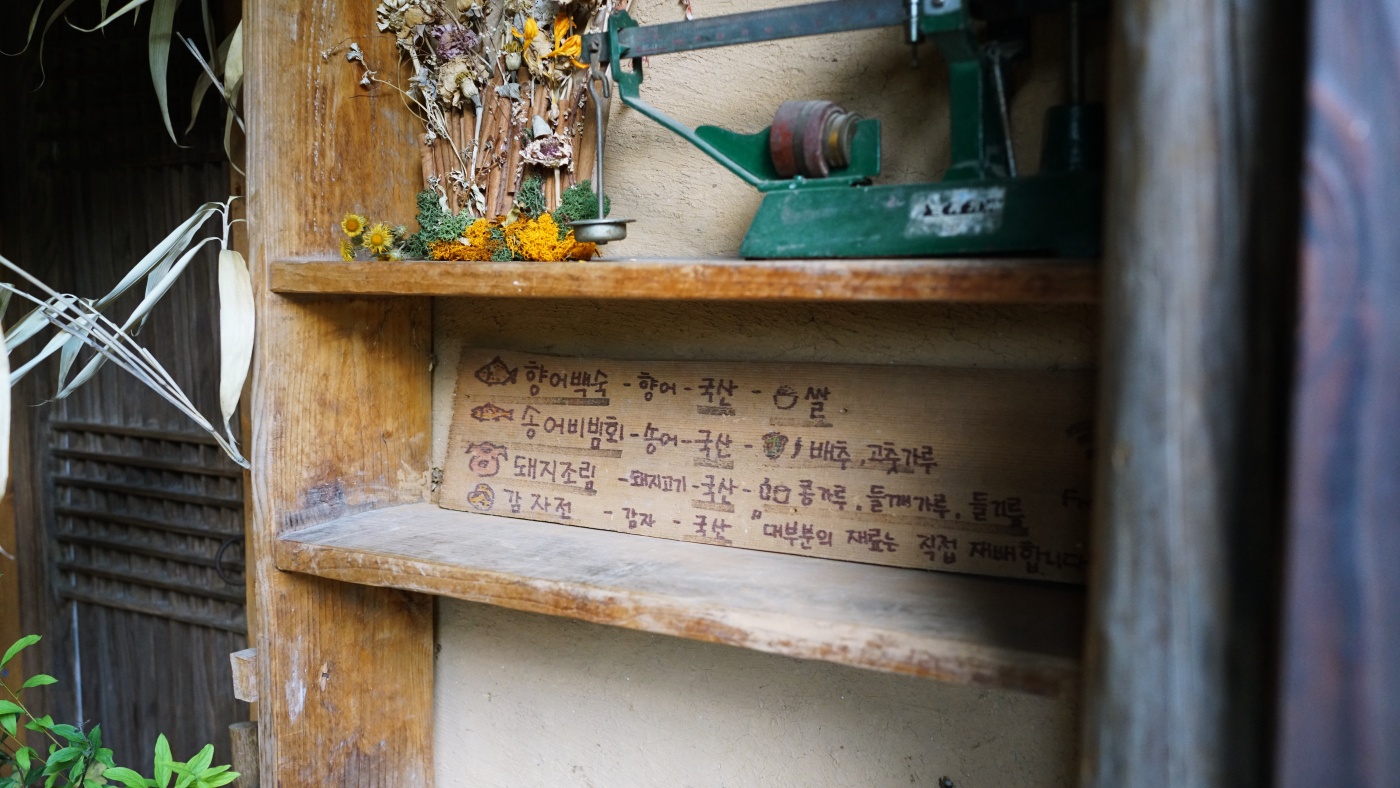 향어백숙 - 향어 - 국산 - 쌀
송어비빔회 - 송어 - 국산 - 배추, 고춧가루
돼지조림 - 돼지고기 - 국산 - 콩가루, 들깨가루, 들기름
감자전 - 감자 - 국산 "대부분의 재료는 직접 재배합니다